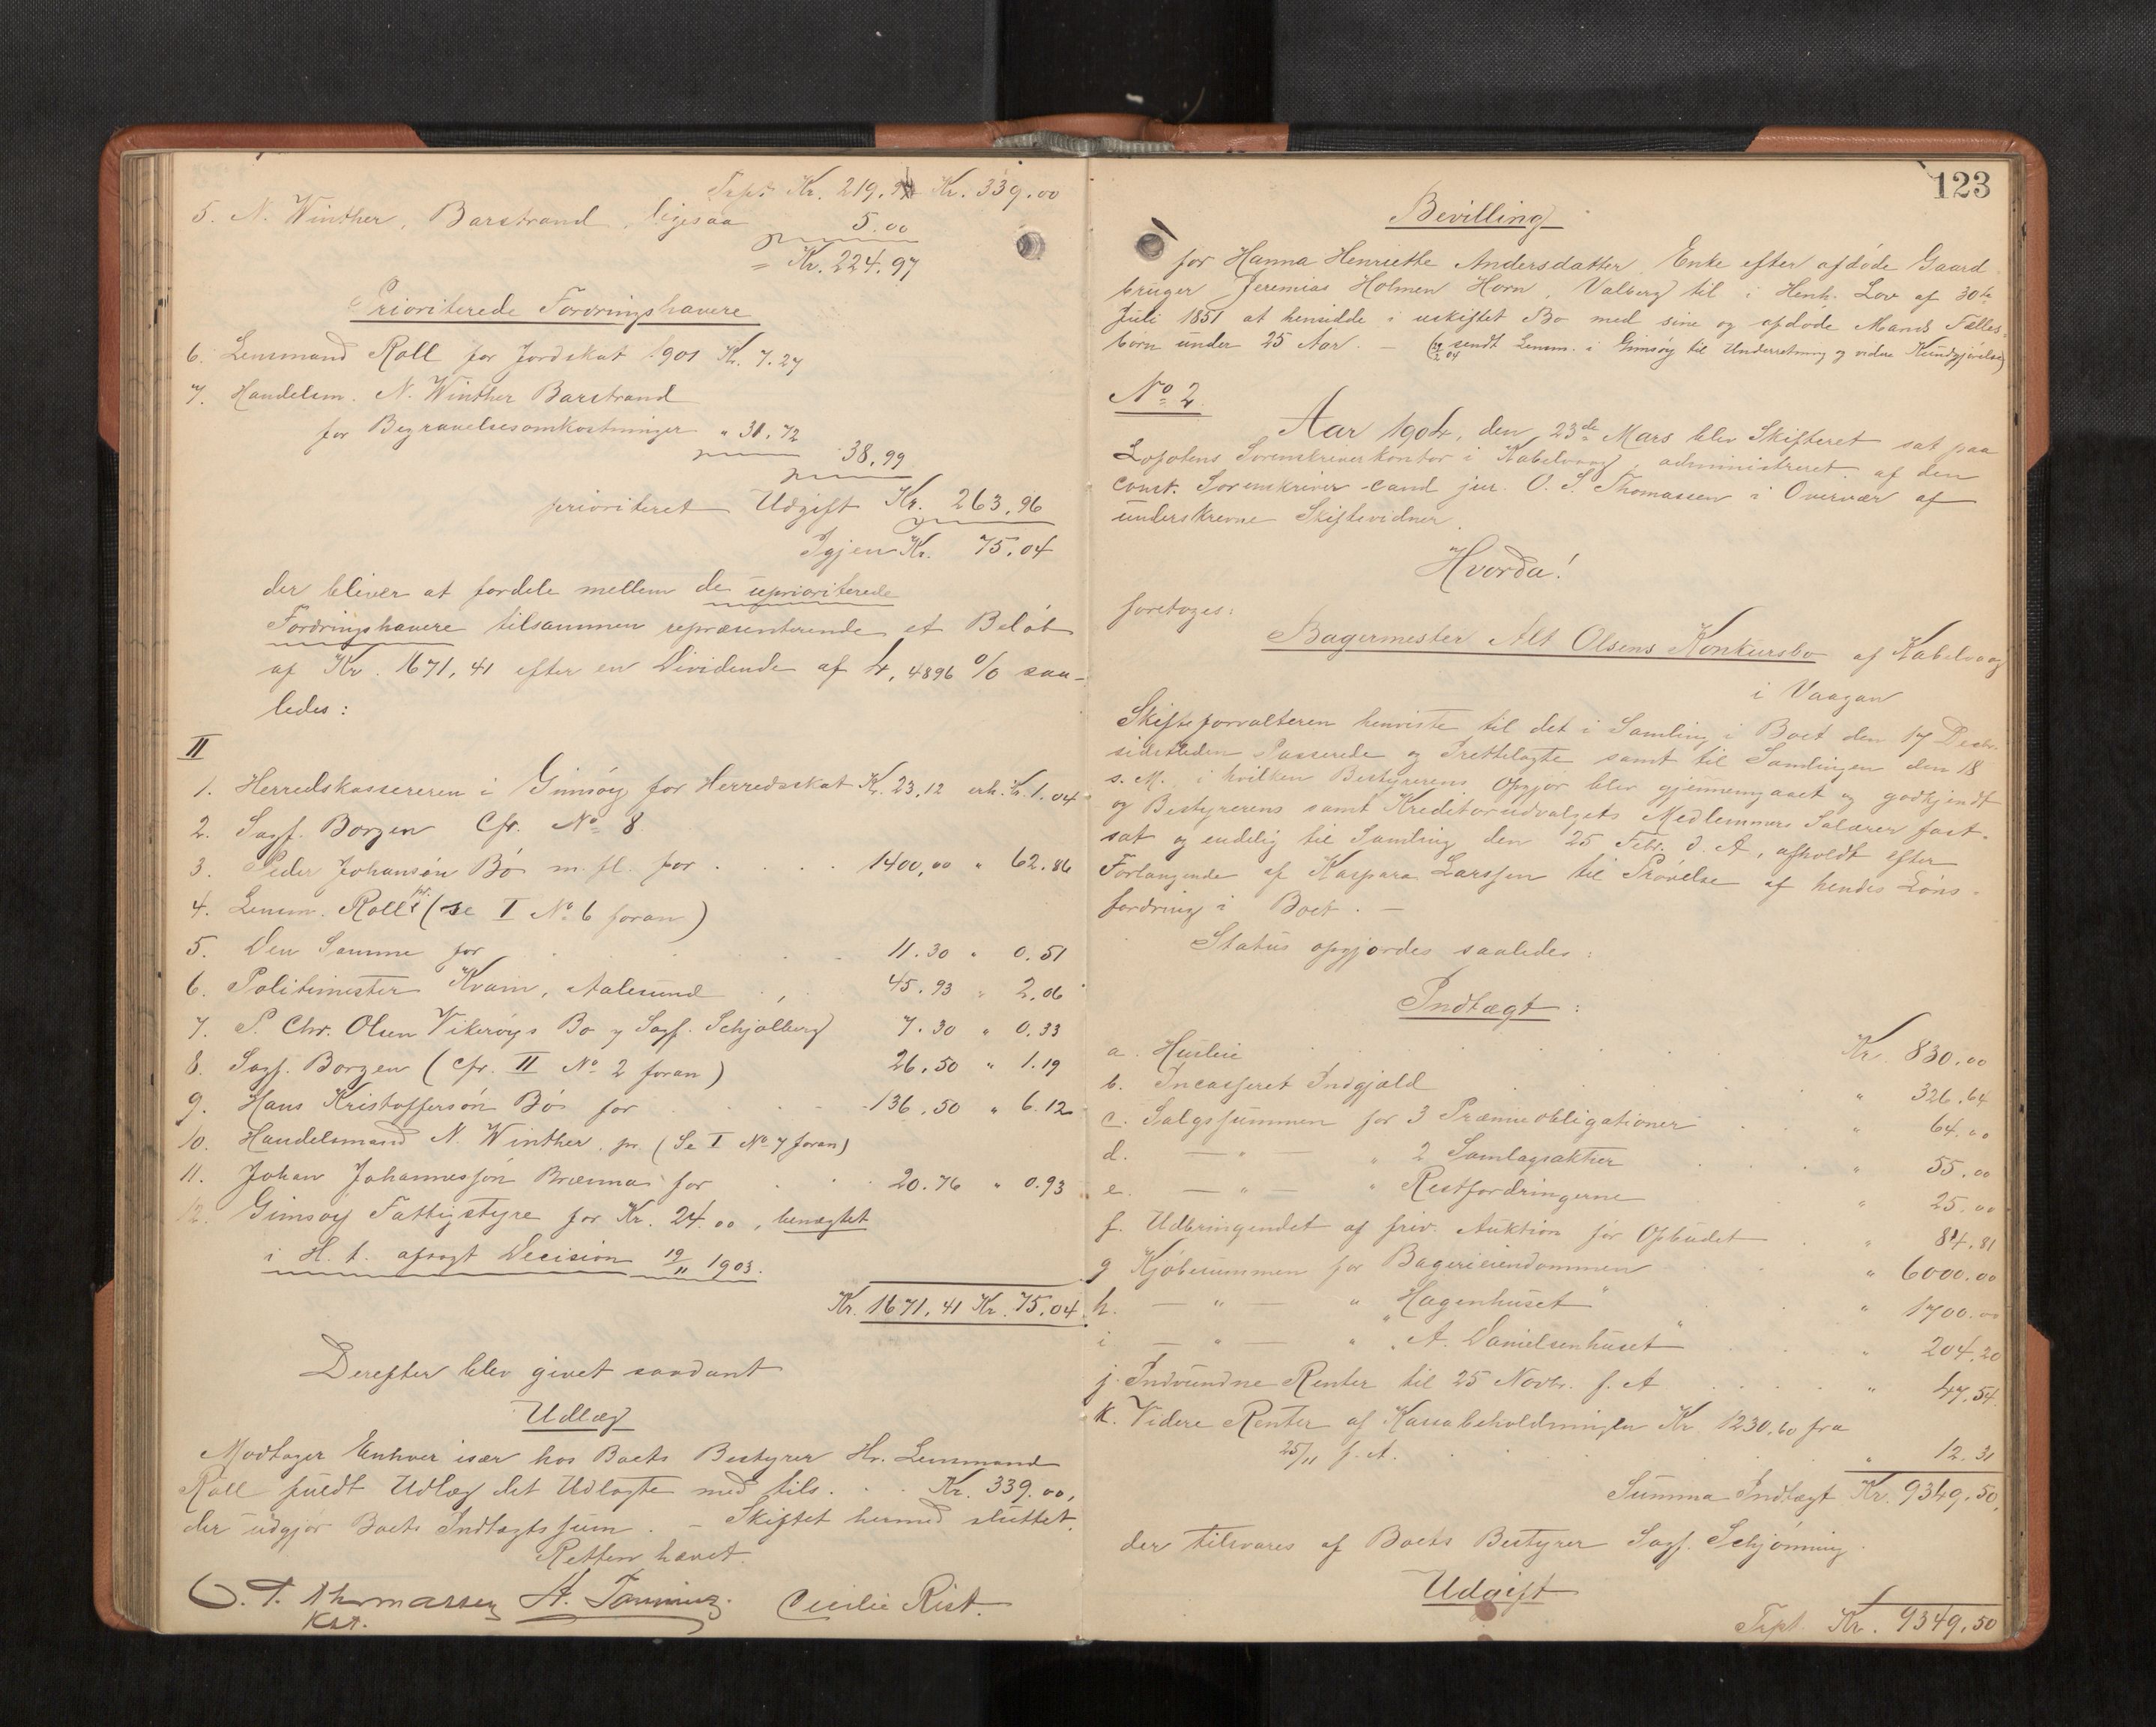 Trpt Kr. 219.97 Kr. 339.00
5. N. Winther, Barstrand, ligesaa 5.00
= Kr. 224.97
Prioriterede Fordringshavere
6. Lensmand Roll for Jordskat 1901 Kr. 7.27
7. Handelsm. N. Winther Barstrand
for Begravelsesomkostninger " 31.72
38.99
prioriteret Udgift Kr. 263.96
Igjen Kr. 75.04
der bliver at fordele mellem de uprioriterede
Fordringshavere tilsammen repræsenterende et Beløb
af Kr. 1671,41 efter en Dividende af 4,4896 % saa-
ledes:
II
1. Herredskassereren i Gimsøy for Herredsskat Kr. 23,12 erh. Kr. 1.04
2. Sagf. Borgen Cfr. No 8
3. Peder Johansøn Bø m. fl. for . . . . 1400,00 " 62.86
4. Lensm. Roll pr. (se I No 6 foran)
5. Den Samme for . . . 11.30 " 0.51
6. Politimester Kvam, Aalesund . , . 45.93 " 2.06
7. P. Chr. Olsen Vikerøys Bo v Sagf. Schjølberg 7.30 " 0.33
8. Sagf. Borgen (cfr. II No 2 foran) 26.50 " 1.19
9. Hans Kristoffersøn Bø for . . . 136.50 " 6.12
10. Handelsmand N. Winther. pr. (Se I No 7 foran)
11. Johan Johannessøn Brenna for . . . 20.76 " 0.93
12. Gimsøy Fattigstyre for Kr. 24.00, benægtet
i H. t. afsagt Decision 19/11 1903.
Kr. 1671,41 Kr. 75.04
Derefter blev givet saadant
Udlæg
Modtager Enhver især hos Boets Bestyrer Hr. Lensmand
Roll fuldt Udlæg det Udlagte med tils. . . Kr. 339.00,
der udgjør Boets Indtægtssum. – Skiftet hermed sluttet.
Retten hævet.
O. T. Thomassen Cecilie Rist.
Kst.
123
Bevilling
for Hanna Henriette Andersdatter Enke efter afdøde Gaard
bruger Jeremias Holmen Horn, Valberg til i Henh. Lov af 30te
Juli 1851 at hensidde i uskiftet Bo med sine og afdøde Mands Fælles-
børn under 25 Aar. – ( sendt Lensm. i Gimsøy til Underretning og videre Kundgjørelse)
No 2.
Aar 1904, den 23de Mars blev Skifteret sat paa
Lofotens Sorenskriverkontor i Kabelvaag, administreret af den
const. Sorenskriver cand jur. O. S. Thomassen i Overvær af
underskrevne Skiftevidner.
Hvorda!
foretoges:
Bagermester Alt Olsens Konkursbo af Kabelvaag
i Vaagan
Skifteforvalteren henviste til det i Samling i Boet den 17 Decbr.
sidstleden Passerede og Fretteelagte samt til Samlingen den 18
s. M. i hvilken Bestyrerens Opgjør blev gjennemgaaet og godkjendt
og Bestyrerens samt Kreditorudvalgets Medlemmers Salærer fast-
sat og endelig til Samling den 25 Febr. d. A, afholdt efter
Forlangende af Kaspara Larssen til Prøvelse af hendes Løns-
fordring i Boet. –
Status opgjordes saaledes:
Indtægt:
a. Husleie . . . . . Kr. 830.00
b. Incasseret Indgjæld . . . . " 326.64
c. Salgssummen for 3 Præmieobligationer . . " 64.00
d. — " — " 2 Samlagsaktier . . . " 55.00
e. — " — " Restfordringerne " 25.00
f. Udbringendet af friv. Auktion før Opbudet . " 84.81
g Kjøbesummen for Bagerieiendommen " 6000.00
h. — " — " "Hagenhuset" . . " 1700.00
i — " — " "A. Danielsenhuset" . . " 204.20
j. Indvundne Renter til 25 Novbr. f. A . . . . " 47.54
k. Videre Renter af Kassabeholdningen Kr 1230.60 fra
25/11 f. A. . . . . " 12.31
Summa Indtægt Kr. 9349.50,
der tilsvares af Boets Bestyrer Sagf. Schjønning.
Udgift
Trpt. Kr. 9349.50